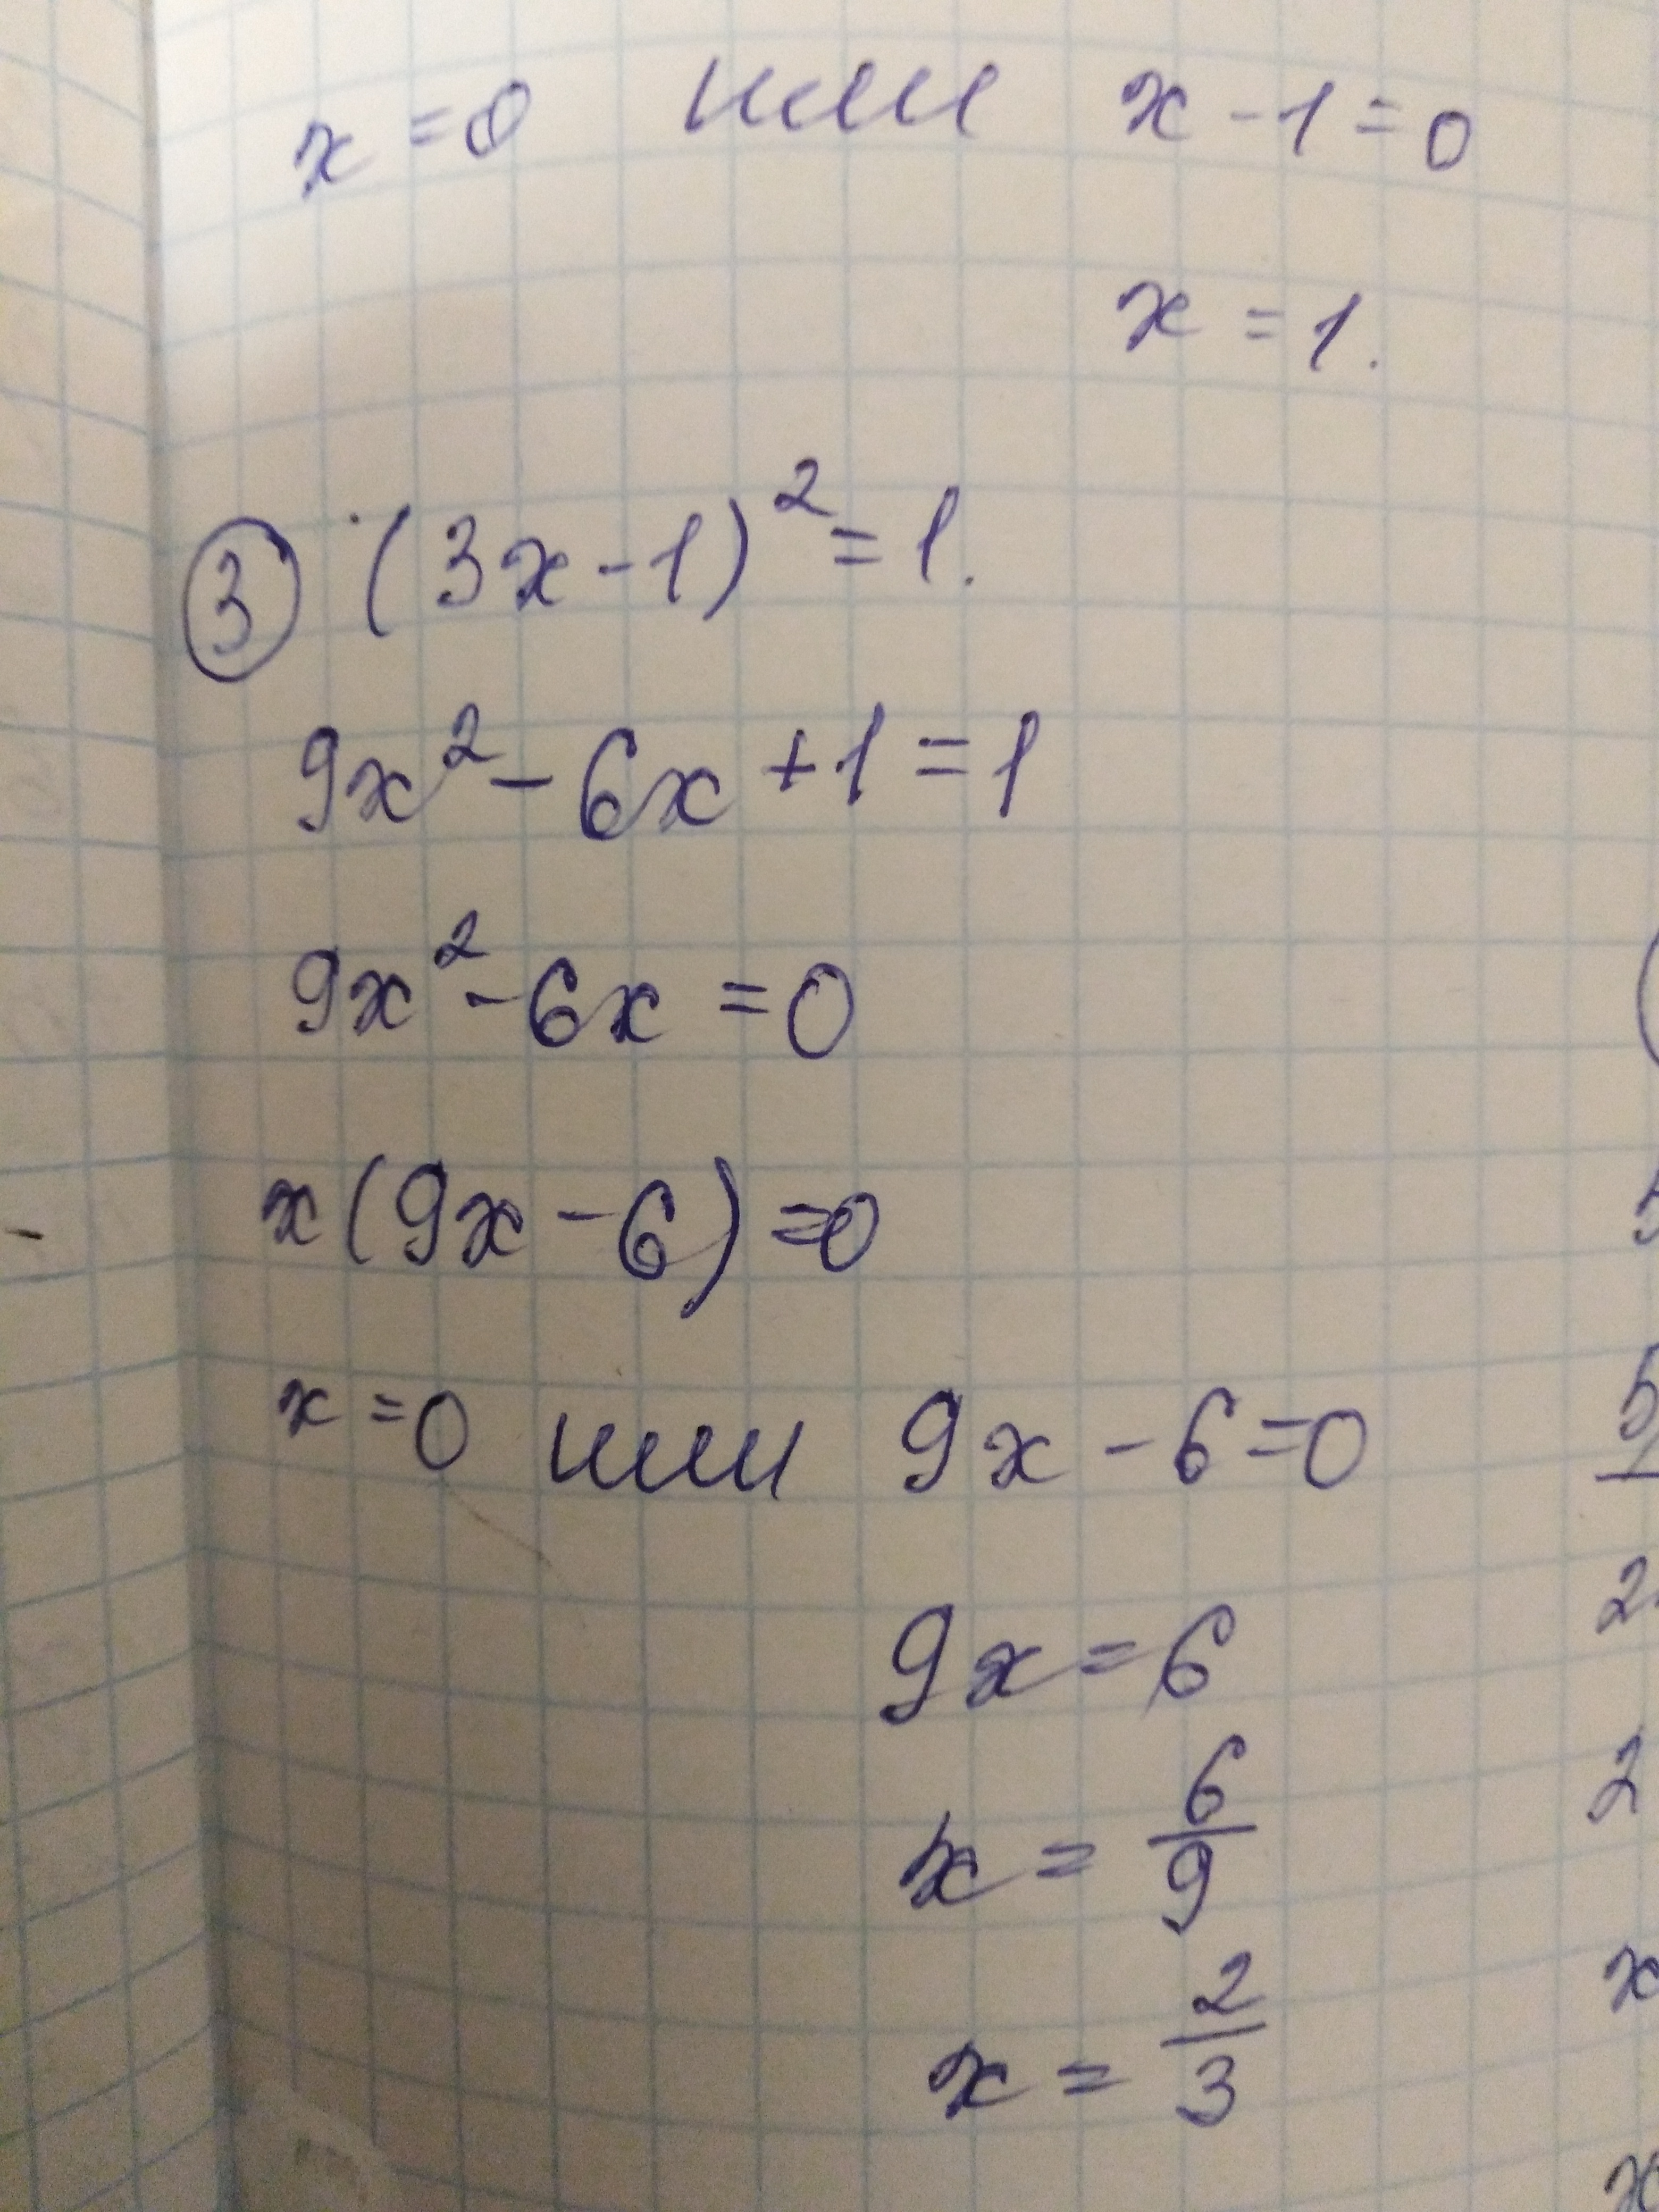 x = 0 или x - 1 = 0
x = 1.
③ (3x - 1)² = 1.
9x² - 6x + 1 = 1
9x² - 6x = 0
x(9x - 6) = 0
x = 0 или 9x - 6 = 0
9x = 6
x = 6/9
x = 2/3
5
2
2
x
x